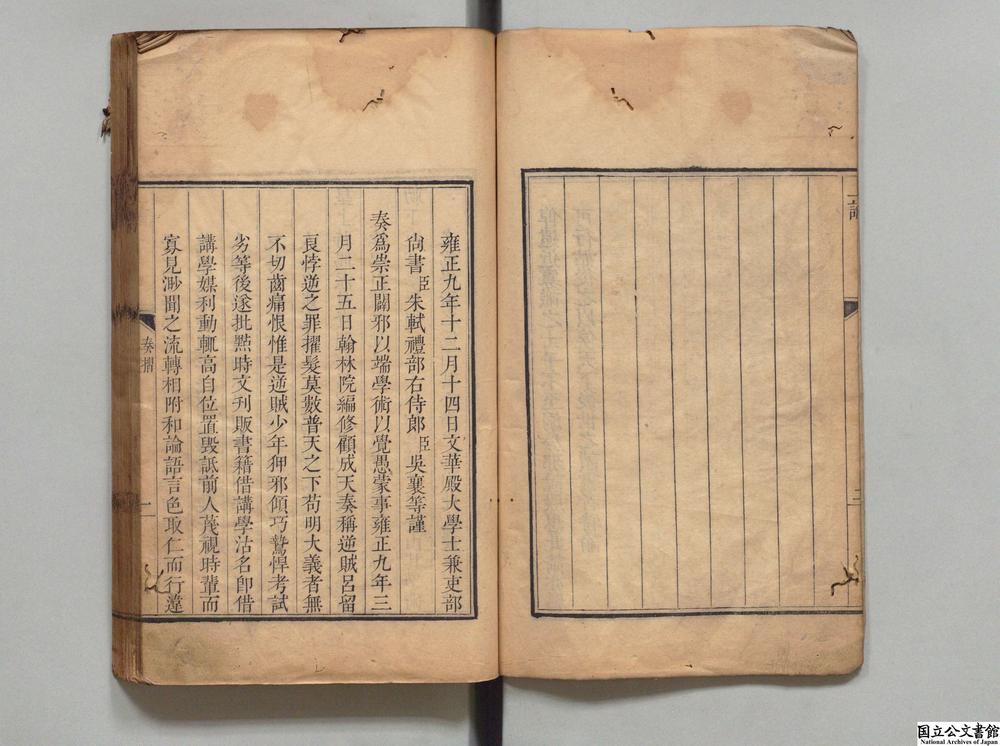 雍正九年十二月十四日文華殿大學士兼吏部
尚書臣朱軾禮部右侍郎臣吳襄等謹
奏爲崇正闢邪以端學術以覺愚蒙事雍正九年三
月二十五日翰林院編修顧成天奏稱逆賊呂留
良悖逆之罪擢髮莫數普天之下苟明大義者無
不切齒痛恨惟是逆賊少年狎邪傾巧鷙悍考試
劣等後遂批㸃時文刋販書籍借講學沽名卽借
講學媒利動輒高自位置毁詆前人蔑視時輩而
寡見渺聞之流轉相附和論語言色取仁而行違
奏摺
二
国立公文書館
National Archives of Japan